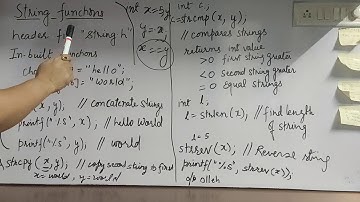 String functions
header "string.h"
In-built functions
= "hello";
= "world";
x, y); // concatenate
printf("%s", x); // hello world
printf("%s", y); // world
strcpy(x, y); // copy second string to first
x = world, y = world
int x = 5;
y = x;
x == y
int c,
c = strcmp(x, y);
// compares strings
returns int value
>0 first string greater
<0 second string greater
=0 equal strings
int l,
l = strlen(x); // find length
of string
l = 5
strrev(x); // Reversal string
printf("%s", strrev(x));
o/p olleh